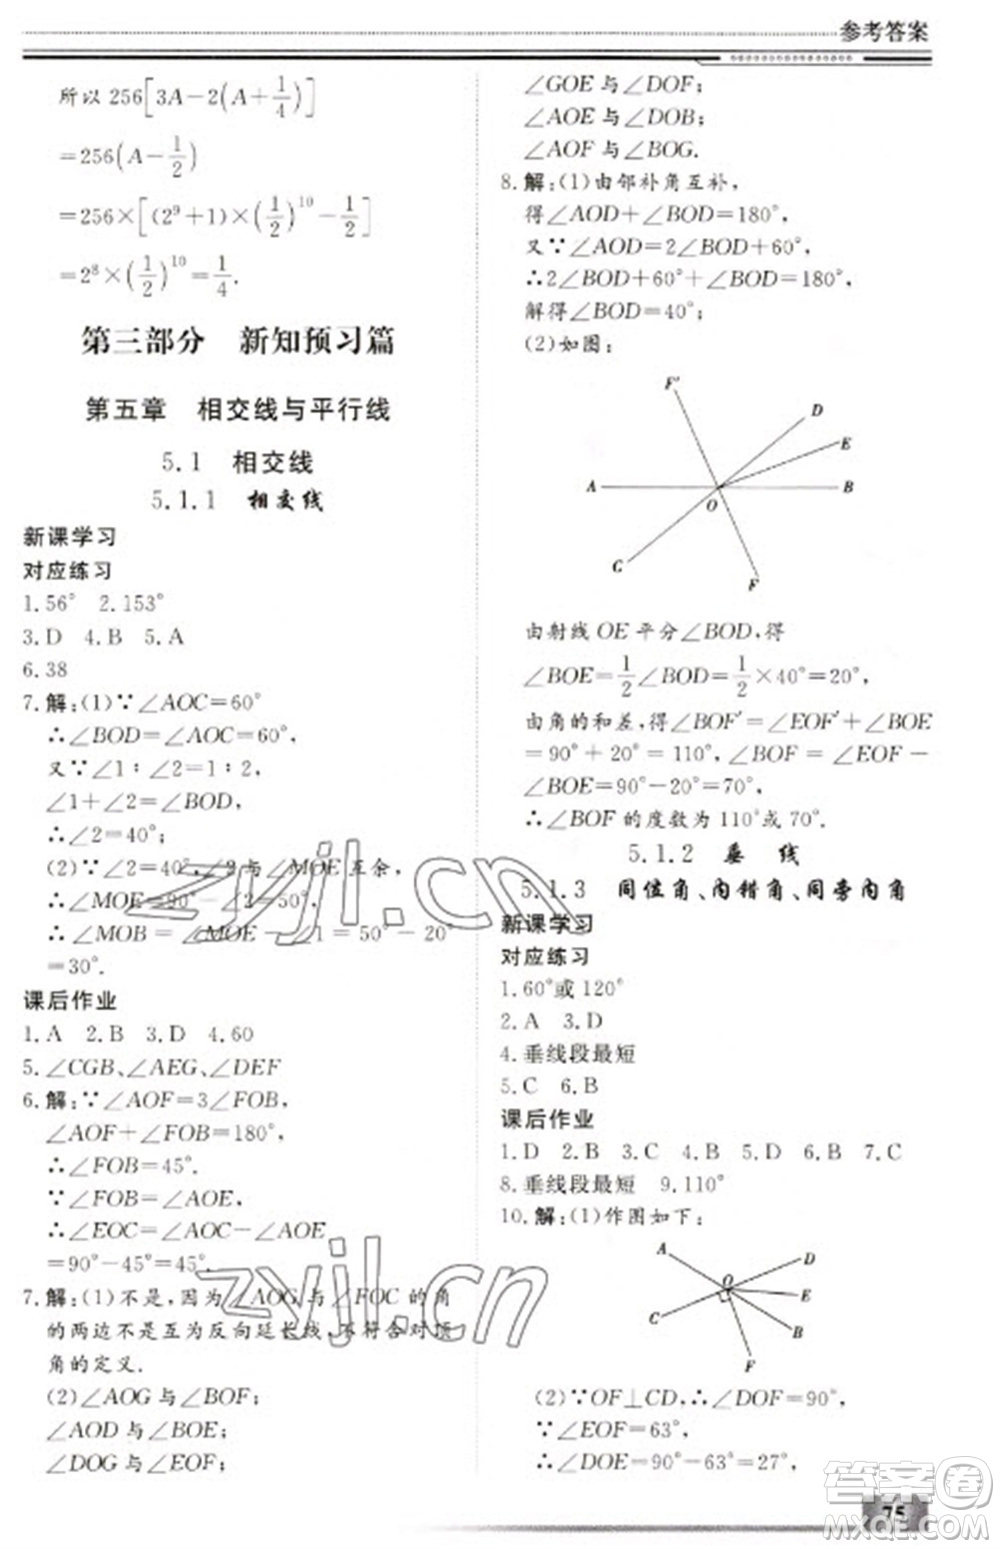 参考答案
所以256[3A-2(A+1/4)]
=256(A-1/2)
=256×[(2⁹+1)×(1/2)¹⁰-1/2]
=2⁸×(1/2)¹⁰=1/4.
第三部分 新知预习篇
第五章 相交线与平行线
5.1 相交线
5.1.1 相交线
新课学习
对应练习
1.56° 2.153°
3.D 4.B 5.A
6.38
7.解:(1)∵∠AOC=60°
∴∠BOD=∠AOC=60°,
又∵∠1∶∠2=1∶2,
∠1+∠2=∠BOD,
∴∠2=40°;
(2)∵∠2=40°,∠2与∠MOE互余,
∴∠MOE=90°-∠2=50°,
∴∠MOB=∠MOE-∠1=50°-20°
=30°.
课后作业
1.A 2.B 3.D 4.60
5.∠CGB、∠AEG、∠DEF
6.解:∵∠AOF=3∠FOB,
∠AOF+∠FOB=180°,
∴∠FOB=45°.
∵∠FOB=∠AOE,
∴∠EOC=∠AOC-∠AOE
=90°-45°=45°.
7.解:(1)不是,因为∠AOG与∠FOC的角
的两边不是互为反向延长线,不符合对顶
角的定义.
(2)∠AOG与∠BOF;
∠AOD与∠BOE;
∠DOG与∠EOF;
∠GOE与∠DOF;
∠AOE与∠DOB;
∠AOF与∠BOG.
8.解:(1)由邻补角互补,
得∠AOD+∠BOD=180°,
又∵∠AOD=2∠BOD+60°,
∴2∠BOD+60°+∠BOD=180°,
解得∠BOD=40°;
(2)如图:
F′
D
E
A
B
O
C
F
由射线OE平分∠BOD,得
∠BOE=1/2∠BOD=1/2×40°=20°,
由角的和差,得∠BOF′=∠EOF′+∠BOE
=90°+20°=110°,∠BOF=∠EOF-
∠BOE=90°-20°=70°.
∴∠BOF的度数为110°或70°.
5.1.2 垂 线
5.1.3 同位角、内错角、同旁内角
新课学习
对应练习
1.60°或120°
2.A 3.D
4.垂线段最短
5.C 6.B
课后作业
1.D 2.B 3.C 4.B 5.D 6.B 7.C
8.垂线段最短 9.110°
10.解:(1)作图如下:
A
D
O
E
C
B
F
(2)∵OF⊥CD,∴∠DOF=90°,
∵∠EOF=63°,
∴∠DOE=90°-63°=27°,
75
zyjl.cn
zyjl.cn
答案圈
MXQE.COM